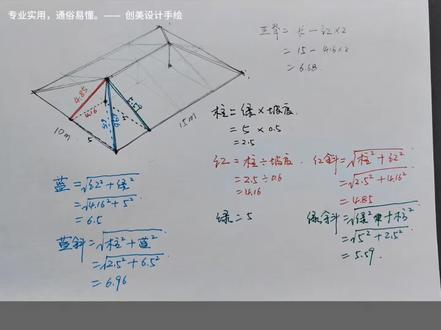 专业实用，通俗易懂。—— 创美设计手绘
主脊 = 长 - 红×2
= 15 - 4.16×2
= 6.68
4.85
4.16
5.59
10m
5
15m
柱 = 绿 × 坡度
= 5 × 0.5
= 2.5
红 = 柱 ÷ 坡度
= 2.5 ÷ 0.6
= 4.16
红斜 = √柱² + 红²
= √2.5² + 4.16²
= 4.85
蓝 = √红² + 绿²
= √4.16² + 5²
= 6.5
绿 = 5
绿斜 = √绿² + 柱²
= √5² + 2.5²
= 5.59
蓝斜 = √柱² + 蓝²
= √2.5² + 6.5²
= 6.96